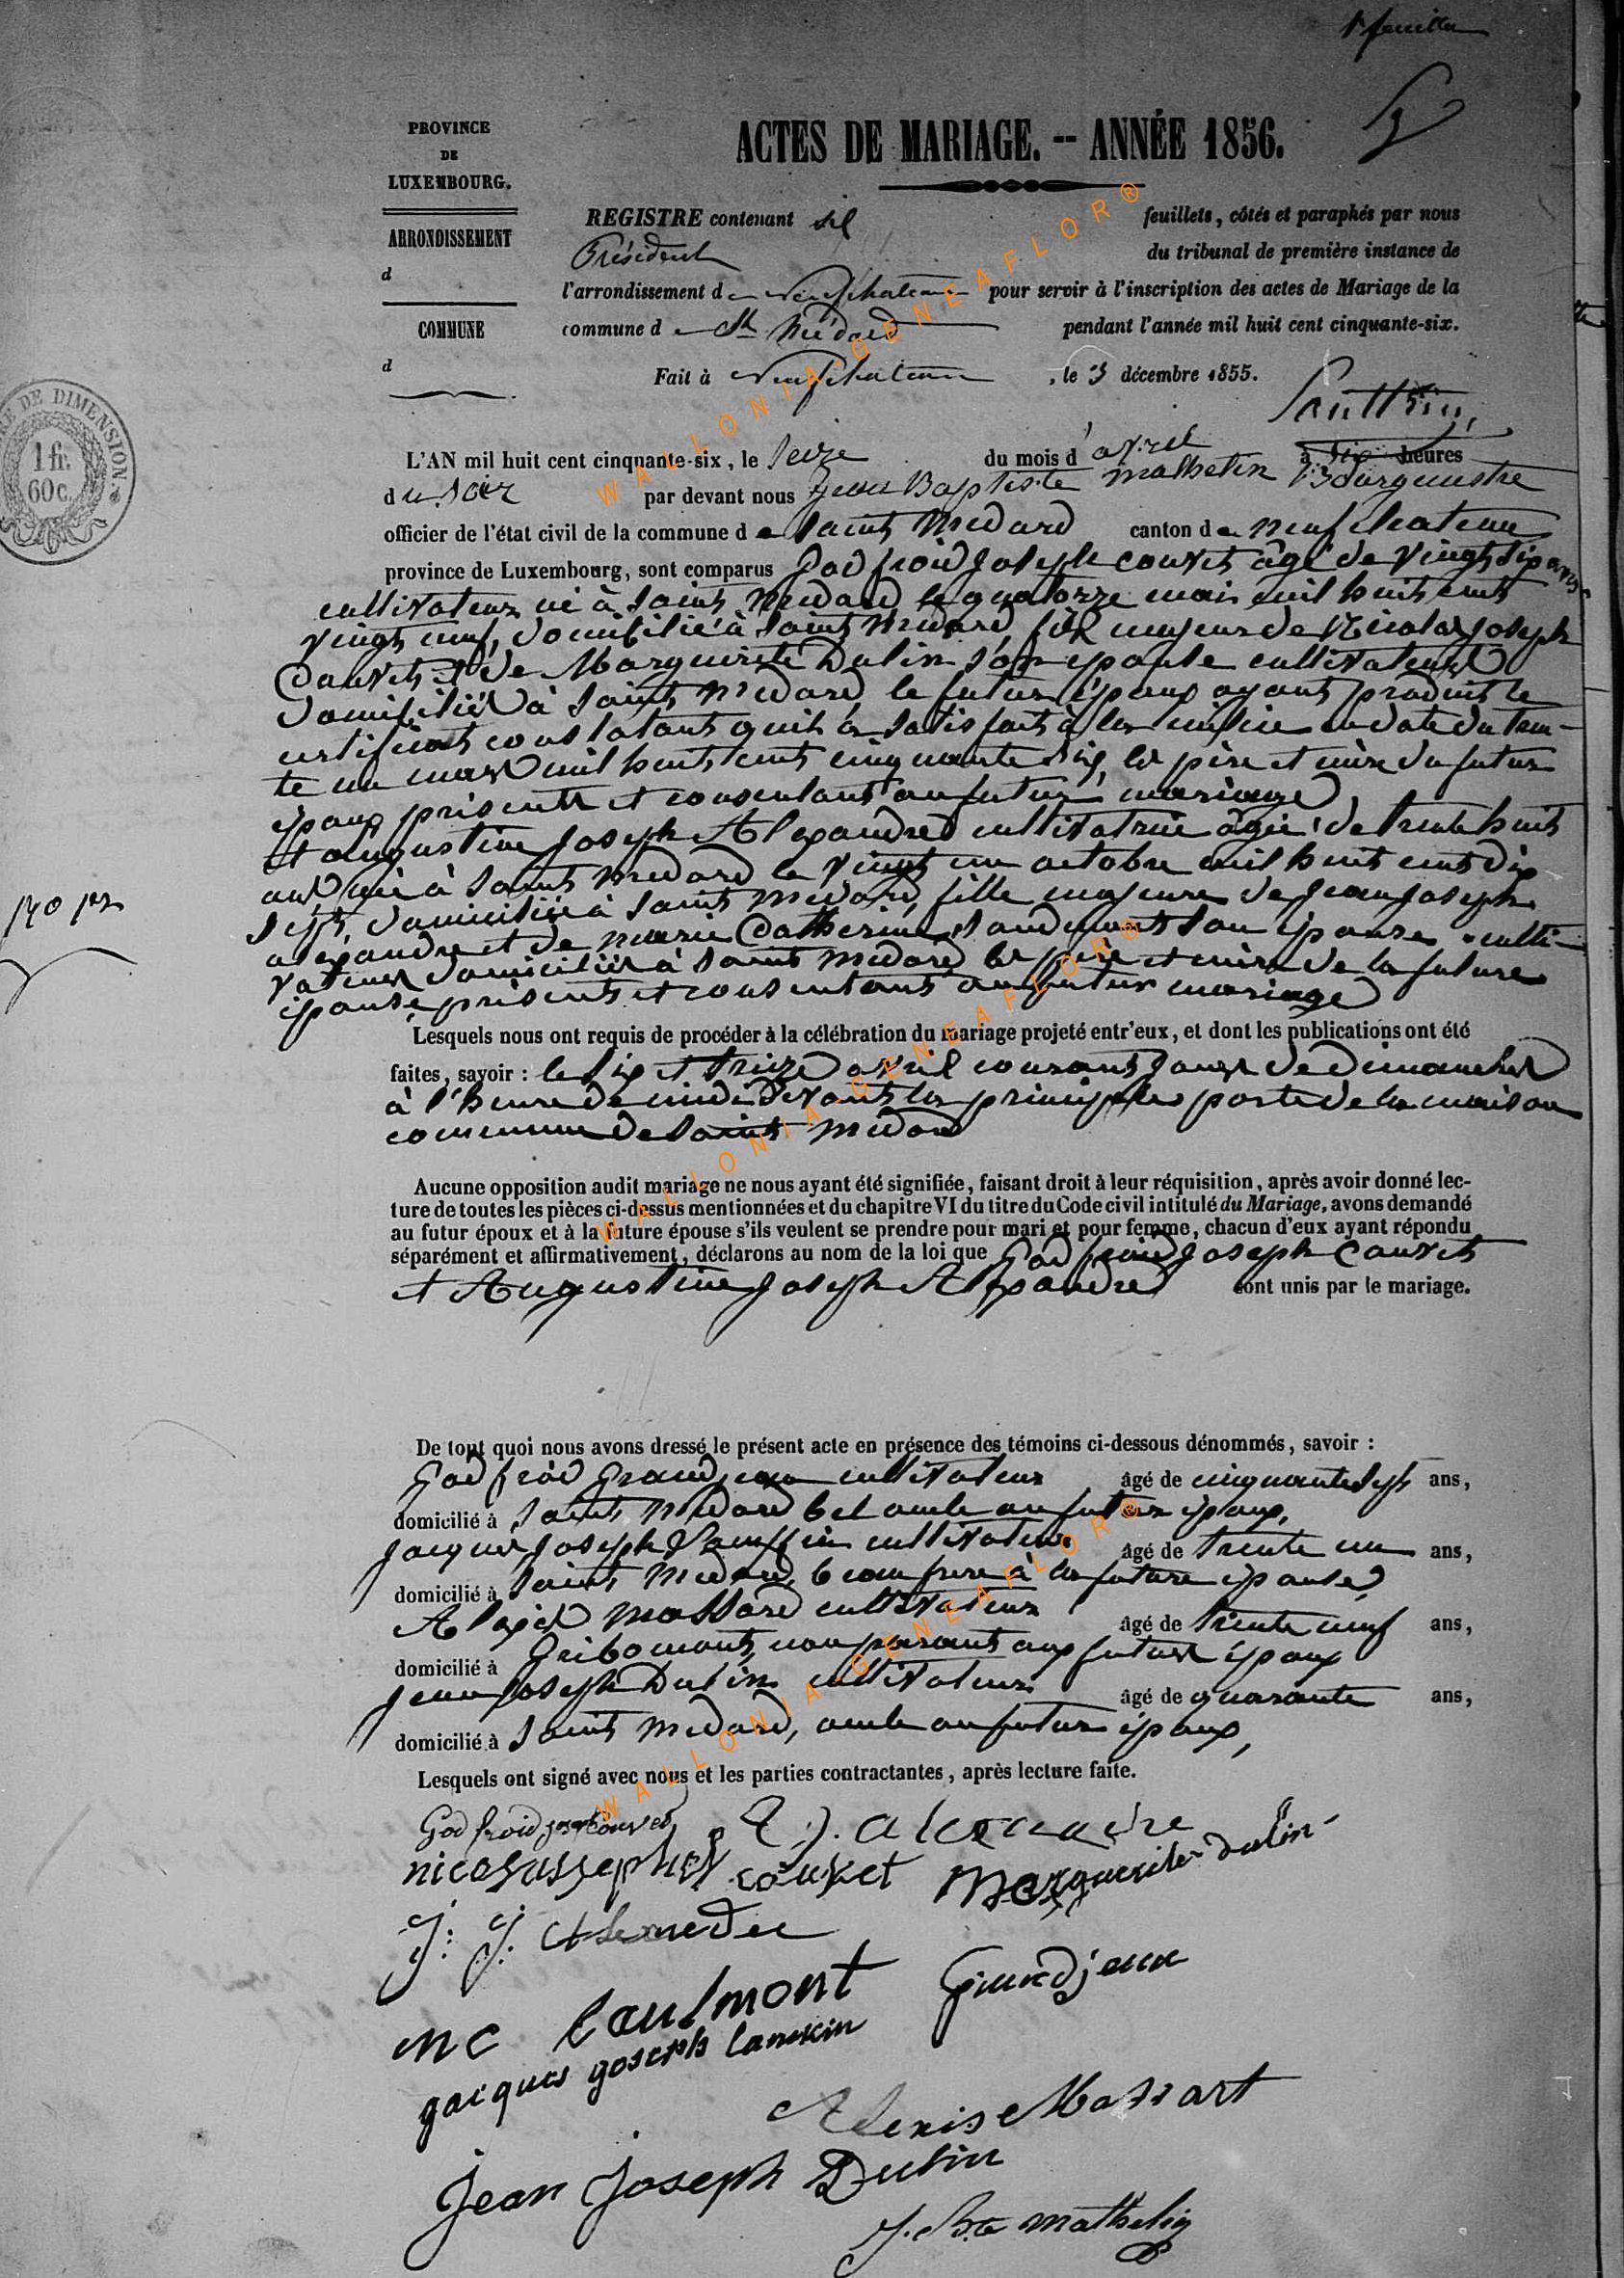 1r feuillet
PROVINCE
DE
LUXEMBOURG.
ARRONDISSEMENT
d
COMMUNE
d
ACTES DE MARIAGE. -- ANNÉE 1856.
REGISTRE contenant six feuillets, côtés et paraphés par nous
Président du tribunal de première instance de
l'arrondissement de Neufchateau pour servir à l'inscription des actes de Mariage de la
commune de St Médard pendant l'année mil huit cent cinquante-six.
Fait à Neufchateau, le 3 décembre 1855.
TIMBRE DE DIMENSION.
1 fr.
60 c.
L'AN mil huit cent cinquante-six, le seize du mois d'avril à six heures
du soir par devant nous Jean Baptiste Mathelin Bourgmestre
officier de l'état civil de la commune de Saint Médard canton de neufchateau
province de Luxembourg, sont comparus Godfroid Joseph Couvet âgé de vingt six ans
cultivateur né à Saint Médard le quatorze mai mil huit cent
vingt neuf, domicilié à Saint Médard fils majeur de Nicolas Joseph
Couvet et de Marguerite Dulin son épouse cultivateurs
domiciliés à Saint Médard le futur époux ayant produit le
certificat constatant qu'il a satisfait à la milice en date du tren-
te un mars mil huit cent cinquante six, les père et mère du futur
époux présents et consentant au futur mariage
et Augustine Joseph Alexandre cultivatrice âgée de trente huit
ans née à Saint Médard le vingt un octobre mil huit cent dix
sept, domiciliée à Saint Médard, fille majeure de Jean Joseph
alexandre et de marie Catherine son épouse, culti-
vateurs domiciliés à Saint Médard les père et mère de la future
épouse présents et consentant au futur mariage
Lesquels nous ont requis de procéder à la célébration du mariage projeté entr'eux, et dont les publications ont été
faites, savoir : le six et treize avril courant jours de dimanches
à l'heure de midi devant la principale porte de la maison
commune de Saint Médard
Aucune opposition audit mariage ne nous ayant été signifiée, faisant droit à leur réquisition, après avoir donné lec-
ture de toutes les pièces ci-dessus mentionnées et du chapitre VI du titre du Code civil intitulé du Mariage, avons demandé
au futur époux et à la future épouse s'ils veulent se prendre pour mari et pour femme, chacun d'eux ayant répondu
séparément et affirmativement, déclarons au nom de la loi que Godfroid Joseph Couvet
et Augustine Joseph Alexandre sont unis par le mariage.
De tout quoi nous avons dressé le présent acte en présence des témoins ci-dessous dénommés, savoir :
Godfroid Grandjean cultivateur âgé de cinquante sept ans,
domicilié à Saint Médard bel oncle au futur époux,
Jacques Joseph cultivateur âgé de trente un ans,
domicilié à Saint Médard, beau frère à la future épouse,
Alexis Massard cultivateur âgé de trente neuf ans,
domicilié à Gribomont, non parent aux futurs époux
Jean Joseph Dulin cultivateur âgé de quarante ans,
domicilié à Saint Médard, oncle au futur époux,
Lesquels ont signé avec nous et les parties contractantes, après lecture faite.
Godfroid Joseph Couvet
A. J. alexandre
nicolas joseph couvet
Marguerite Dulin
J: J: Alexandre
MC Caulmont
Grandjean
Alexis Massart
Jean Joseph Dulin
J. Bte Mathelin
WALLONIA-GENEAFLOR®
WALLONIA-GENEAFLOR®
WALLONIA-GENEAFLOR®